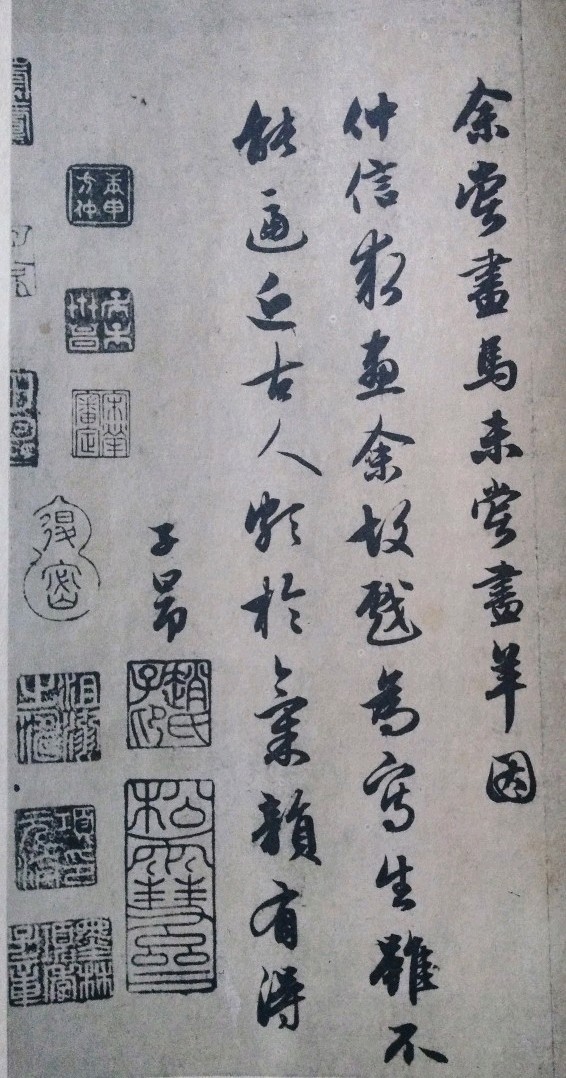 余嘗畫馬未嘗畫羊因
仲信求畫余故戲為寫生雖不
能逼近古人頗於氣韻有得
子昂
趙氏子昂
松雪齋
宋犖審定
退密
項元汴印